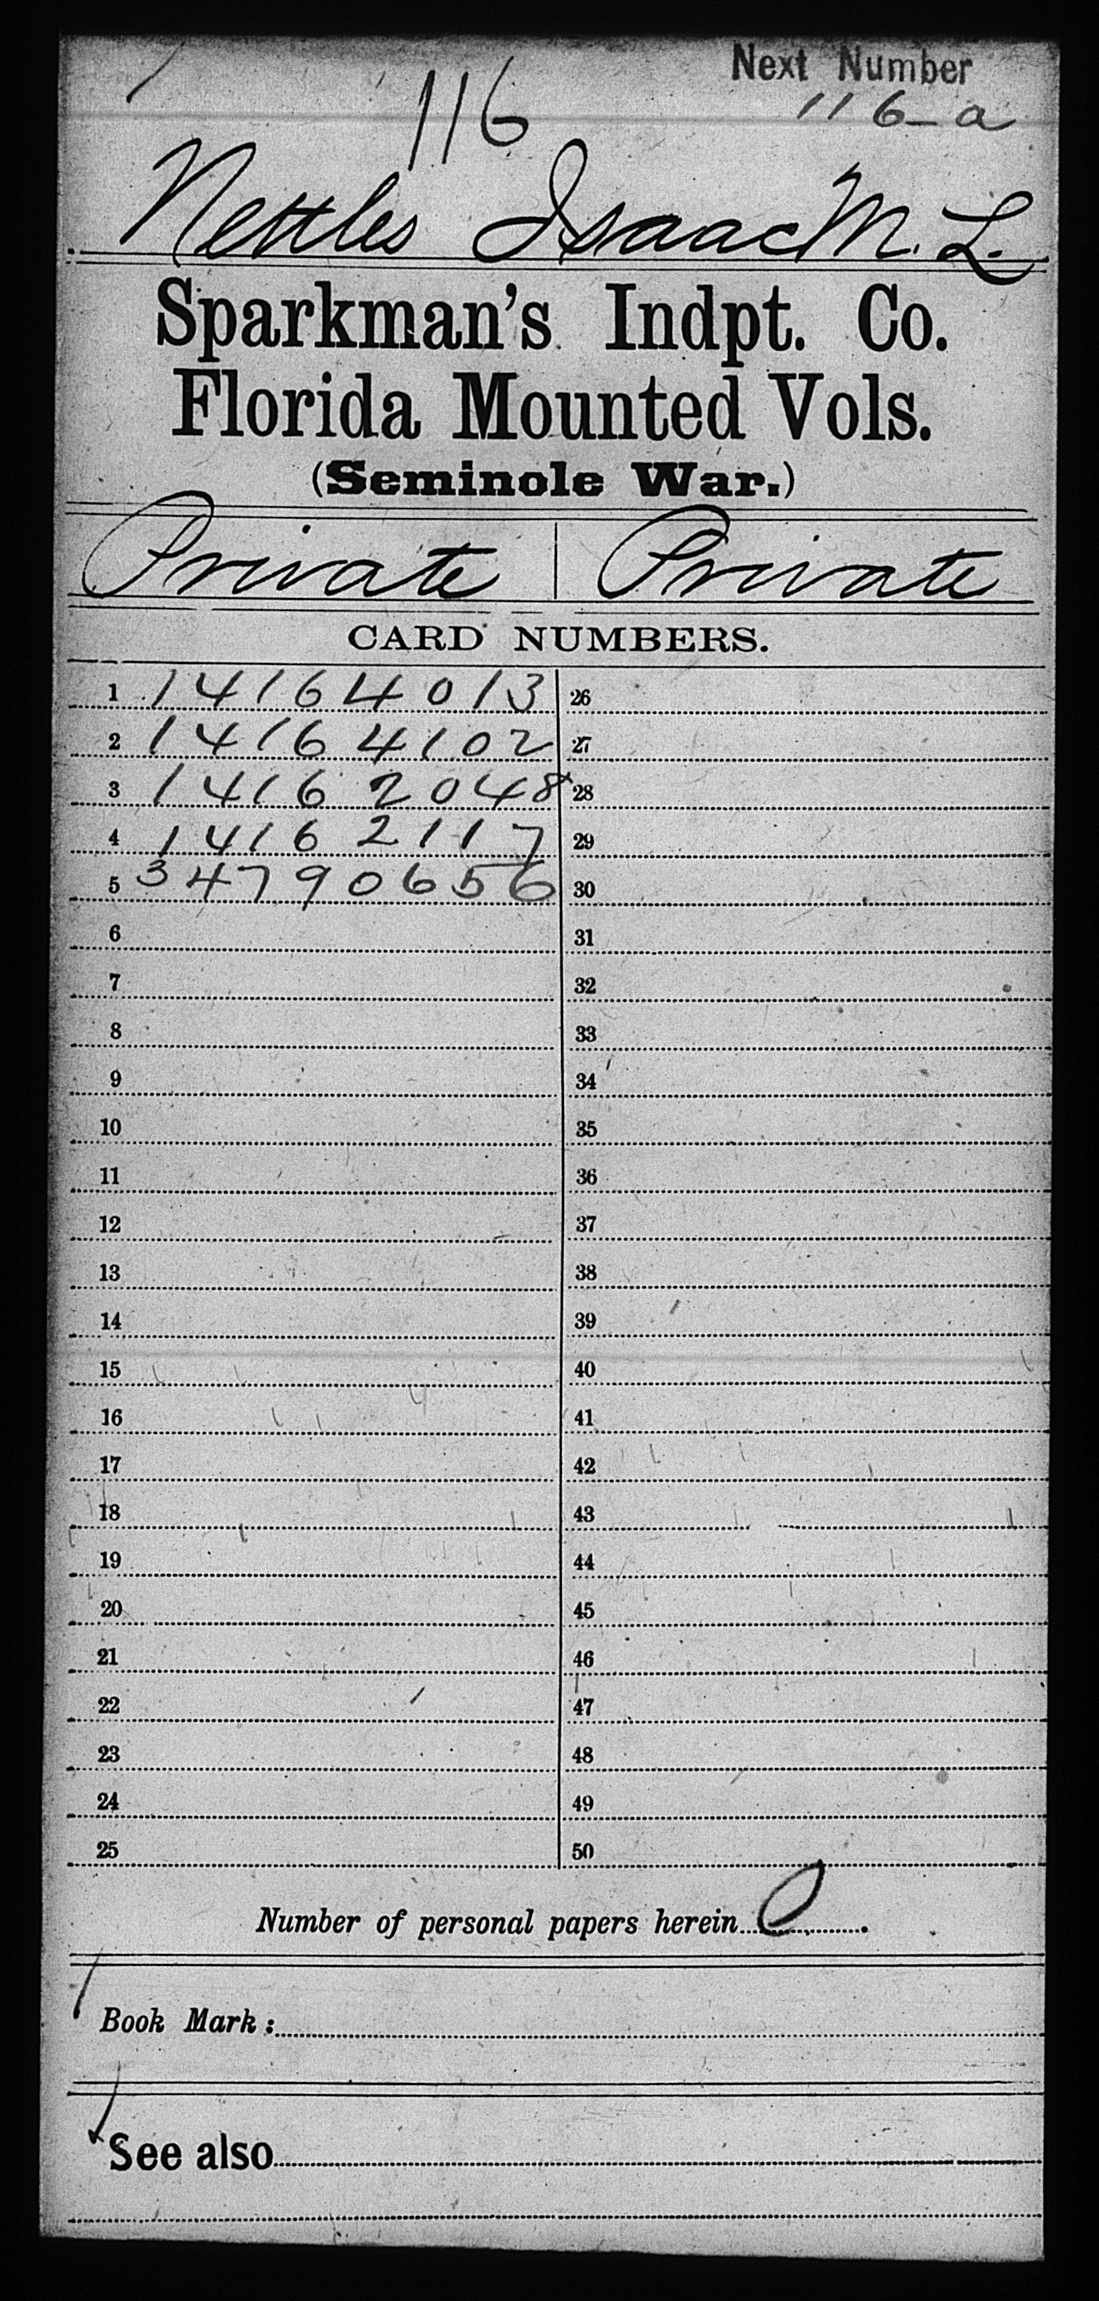 Next Number
116
116-a
Nettles Isaac M. L.
Sparkman's Indpt. Co.
Florida Mounted Vols.
(Seminole War.)
Private | Private
CARD NUMBERS.
1 14164013 26
2 14164102 27
3 14162048 28
4 14162117 29
5 34790656 30
6 31
7 32
8 33
9 34
10 35
11 36
12 37
13 38
14 39
15 40
16 41
17 42
18 43
19 44
20 45
21 46
22 47
23 48
24 49
25 50
Number of personal papers herein 0.
Book Mark:
See also